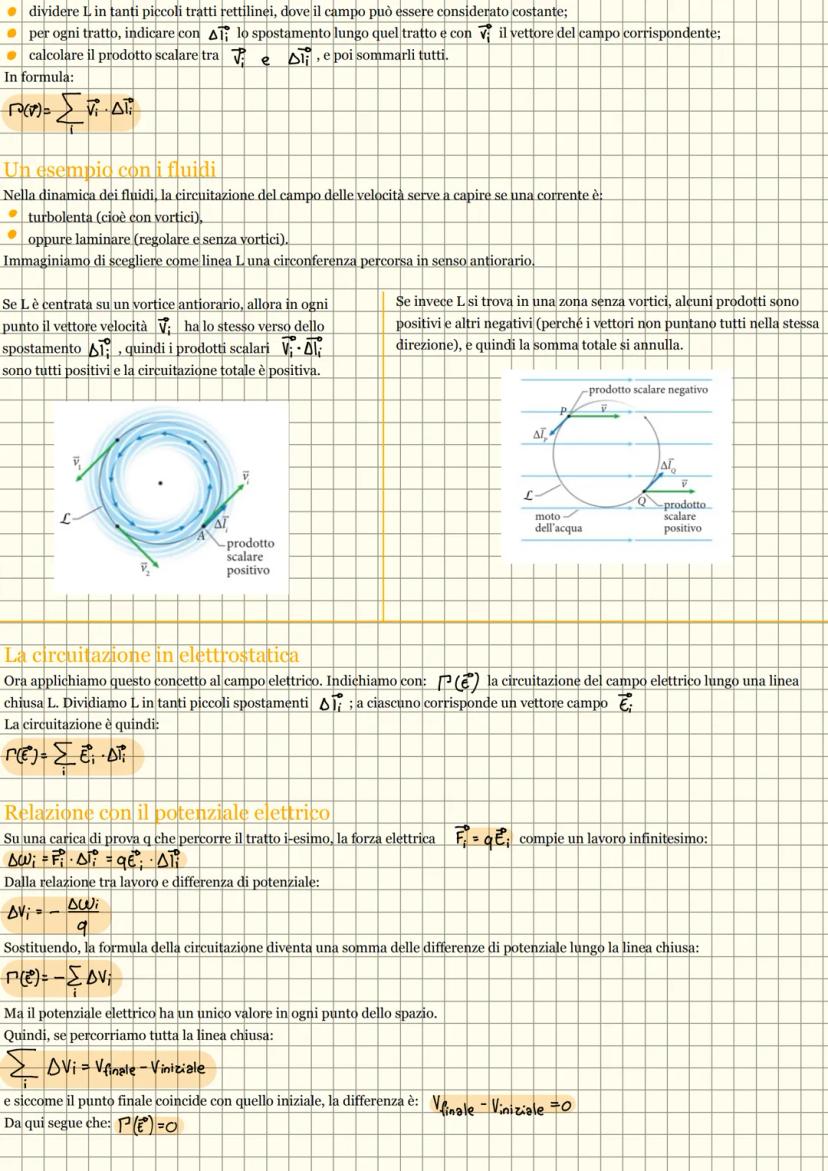 dividere L in tanti piccoli tratti rettilinei, dove il campo può essere considerato costante;
per ogni tratto, indicare con Δl⃗ᵢ lo spostamento lungo quel tratto e con v⃗ᵢ il vettore del campo corrispondente;
calcolare il prodotto scalare tra v⃗ᵢ e Δl⃗ᵢ, e poi sommarli tutti.
In formula:
Γ(v⃗) = ∑ᵢ v⃗ᵢ · Δl⃗ᵢ
Un esempio con i fluidi
Nella dinamica dei fluidi, la circuitazione del campo delle velocità serve a capire se una corrente è:
turbolenta (cioè con vortici),
oppure laminare (regolare e senza vortici).
Immaginiamo di scegliere come linea L una circonferenza percorsa in senso antiorario.
Se L è centrata su un vortice antiorario, allora in ogni
punto il vettore velocità v⃗ᵢ ha lo stesso verso dello
spostamento Δl⃗ᵢ, quindi i prodotti scalari v⃗ᵢ · Δl⃗ᵢ
sono tutti positivi e la circuitazione totale è positiva.
v⃗₁
v⃗ᵢ
ℒ
Δl⃗ᵢ
A
v⃗₂
prodotto
scalare
positivo
Se invece L si trova in una zona senza vortici, alcuni prodotti sono
positivi e altri negativi (perché i vettori non puntano tutti nella stessa
direzione), e quindi la somma totale si annulla.
prodotto scalare negativo
P
v⃗
Δl⃗ₚ
Δl⃗_Q
v⃗
ℒ
Q
moto
dell'acqua
prodotto
scalare
positivo
La circuitazione in elettrostatica
Ora applichiamo questo concetto al campo elettrico. Indichiamo con: Γ(E⃗) la circuitazione del campo elettrico lungo una linea
chiusa L. Dividiamo L in tanti piccoli spostamenti Δl⃗ᵢ; a ciascuno corrisponde un vettore campo E⃗ᵢ
La circuitazione è quindi:
Γ(E⃗) = ∑ᵢ E⃗ᵢ · Δl⃗ᵢ
Relazione con il potenziale elettrico
Su una carica di prova q che percorre il tratto i-esimo, la forza elettrica F⃗ᵢ = qE⃗ᵢ compie un lavoro infinitesimo:
ΔWᵢ = F⃗ᵢ · Δl⃗ᵢ = qE⃗ᵢ · Δl⃗ᵢ
Dalla relazione tra lavoro e differenza di potenziale:
ΔVᵢ = - ΔWᵢ/q
Sostituendo, la formula della circuitazione diventa una somma delle differenze di potenziale lungo la linea chiusa:
Γ(E⃗) = -∑ᵢ ΔVᵢ
Ma il potenziale elettrico ha un unico valore in ogni punto dello spazio.
Quindi, se percorriamo tutta la linea chiusa:
∑ᵢ ΔVᵢ = Vfinale - Viniziale
e siccome il punto finale coincide con quello iniziale, la differenza è: Vfinale - Viniziale = 0
Da qui segue che: Γ(E⃗) = 0